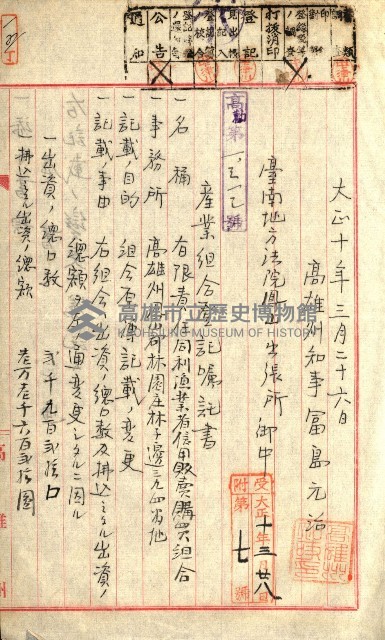 大正十年三月二十六日
高雄州知事冨島元治
臺南地方法院鳳山出張所 御中
受附 大正十年三月廿八日 第七號
高勸第一三一二號
產業組合登記囑託書
一名稱 有限責任同利漁業者信用販賣購買組合
一事務所 高雄州鳳山郡林園庄林子邊三九四番地
一記載ノ目的 組合原簿記載ノ變更
一記載ノ事由 右組合出資ノ總口數及拂込ミタル出資ノ
總額左ノ通變更シタルニ因ル
一出資ノ總口數 貳千九百貳拾口
拂込ミタル出資ノ總額 壹万壹千六百貳拾圓
登記
打拔消印
公告
通知
高雄市立歷史博物館
KAOHSIUNG MUSEUM OF HISTORY
高雄州